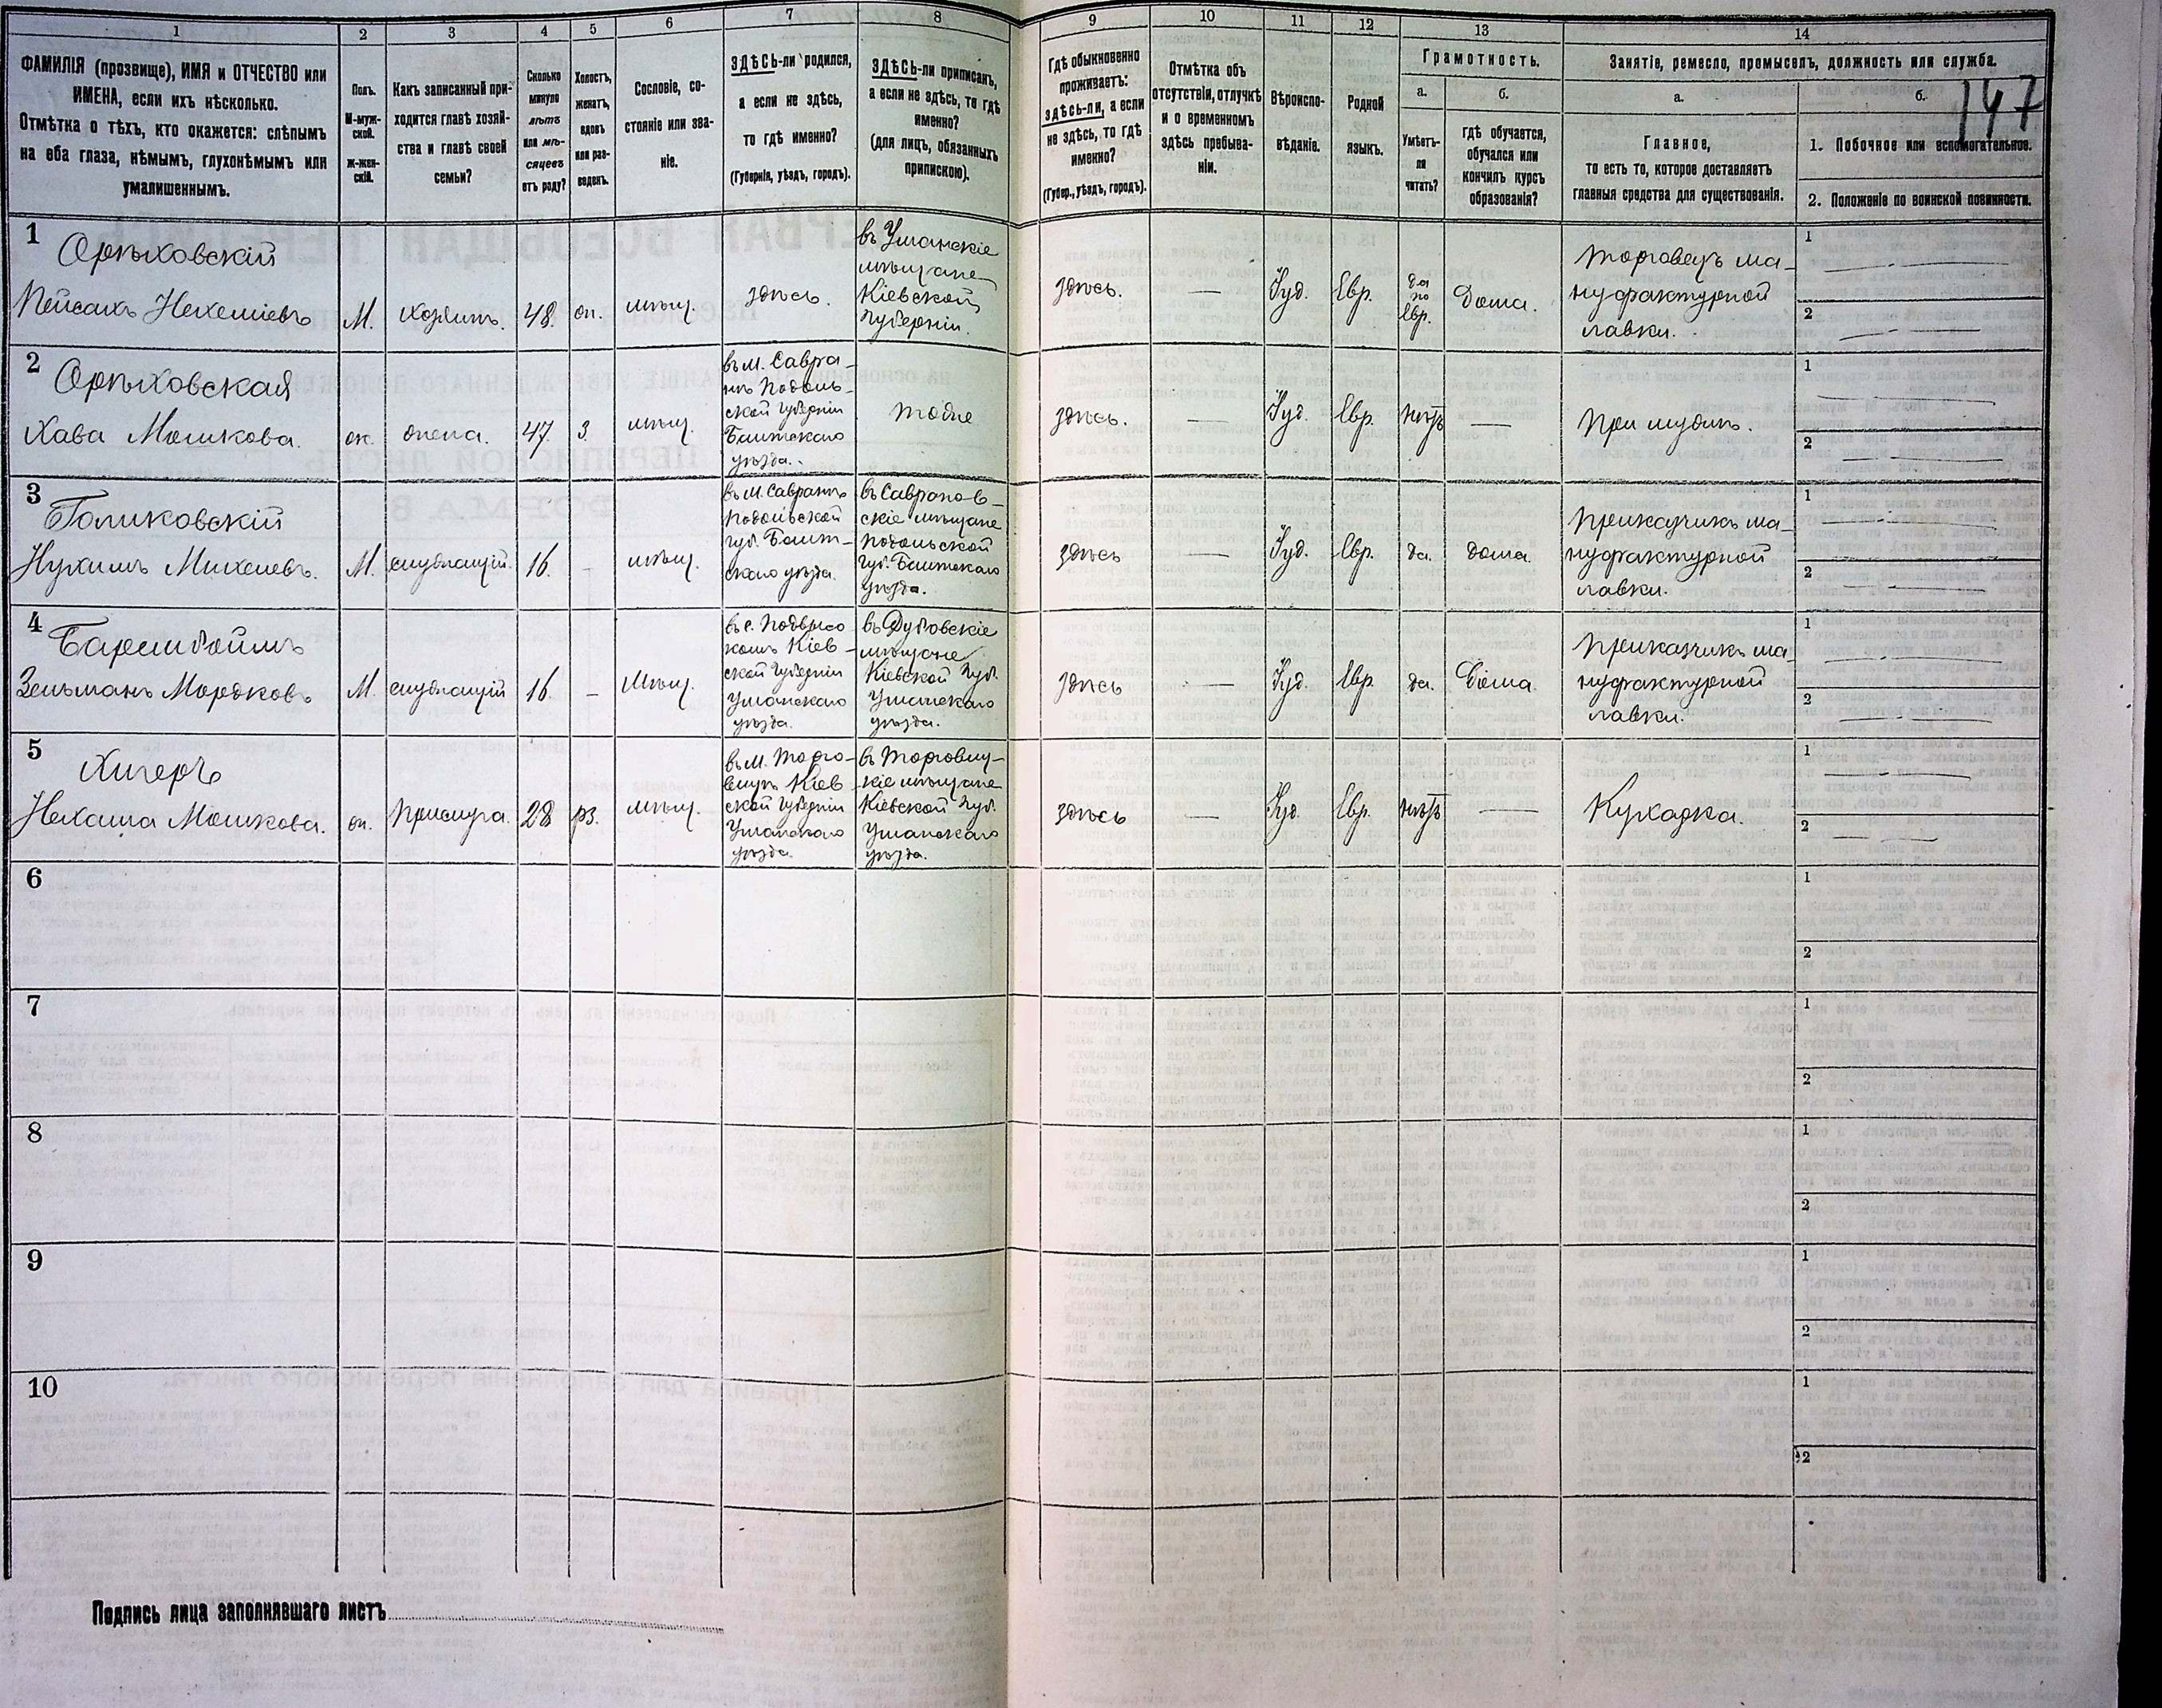 1
2
3
4
5
6
7
8
9
10
11
12
13
14
ФАМИЛІЯ (прозвище), ИМЯ и ОТЧЕСТВО или
ИМЕНА, если ихъ нѣсколько.
Отмѣтка о тѣхъ, кто окажется: слѣпымъ
на оба глаза, нѣмымъ, глухонѣмымъ или
умалишеннымъ.
Полъ.
М-муж-
ской.
Ж-жен-
скій.
Какъ записанный при-
ходится главѣ хозяй-
ства и главѣ своей
семьи?
Сколько
минуло
лѣтъ
или мѣ-
сяцевъ
отъ роду?
Холостъ,
женатъ,
вдовъ
или раз-
веденъ.
Сословіе, со-
стояніе или зва-
ніе.
ЗДѢСЬ-ли родился,
а если не здѣсь,
то гдѣ именно?
(Губернія, уѣздъ, городъ).
ЗДѢСЬ-ли приписанъ,
а если не здѣсь, то гдѣ
именно?
(для лицъ, обязанныхъ
припискою).
Гдѣ обыкновенно
проживаетъ:
здѣсь-ли, а если
не здѣсь, то гдѣ
именно?
(Губер., уѣздъ, городъ).
Отмѣтка объ
отсутствіи, отлучкѣ
и о временномъ
здѣсь пребыва-
ніи.
Вѣроиспо-
вѣданіе.
Родной
языкъ.
Грамотность.
а.
Умѣетъ-
ли
читать?
б.
гдѣ обучается,
обучался или
кончилъ курсъ
образованія?
Занятіе, ремесло, промыселъ, должность или служба.
а.
Главное,
то есть то, которое доставляетъ
главныя средства для существованія.
б.
147
1. Побочное или вспомогательное.
2. Положеніе по воинской повинности.
1
Орѣховскій
Пейсахъ Нехеміевъ
М.
хозяинъ.
48.
жн.
мѣщ.
здѣсь.
въ Уманскіе
мѣщане
Кіевской
губерніи.
здѣсь.
—
Іуд.
Евр.
да
по
Евр.
Дома.
торговецъ ма-
нуфактурной
лавки.
1
2
2
Орѣховская
Хава Мошкова.
ж.
жена.
47.
з.
мѣщ.
въ м. Савра-
нѣ Подоль-
ской губерніи
Балтскаго
уѣзда.
тоже
здѣсь.
Іуд.
Евр.
нѣтъ
—
При мужѣ.
1
2
3
Голиковскій
Нухимъ Михелевъ.
М.
служащій.
16.
-
мѣщ.
въ м. Савранѣ
Подольской
губ. Балт-
скаго уѣзда.
въ Савранов-
скіе мѣщане
Подольской
губ. Балтскаго
уѣзда.
здѣсь
—
Іуд.
Евр.
да.
дома.
Приказчикъ ма-
нуфактурной
лавки.
1
2
4
Зельманъ Мордковъ
М.
служащій
16.
—
Мѣщ.
въ с. Подвысо
комъ Кіев-
ской губерніи
Уманскаго
уѣзда.
въ Дубовскіе
мѣщане
Кіевской губ.
Уманскаго
уѣзда.
здѣсь
—
Іуд.
Евр
да.
Дома
Приказчикъ ма-
нуфактурной
лавки.
1
2
5
Хигеръ
Нехама Мошкова.
жн.
Прислуга.
28
рз.
мѣщ.
въ м. Торго-
вицѣ Кіев
ской губерніи
Уманскаго
уѣзда.
въ Торговиц-
кіе мѣщане
Кіевской губ.
Уманскаго
уѣзда.
здѣсь
—
Іуд.
Евр.
нѣтъ
—
Кухарка.
1
2
6
1
2
7
1
2
8
1
2
9
1
2
10
1
2
Подпись лица заполнявшаго листъ